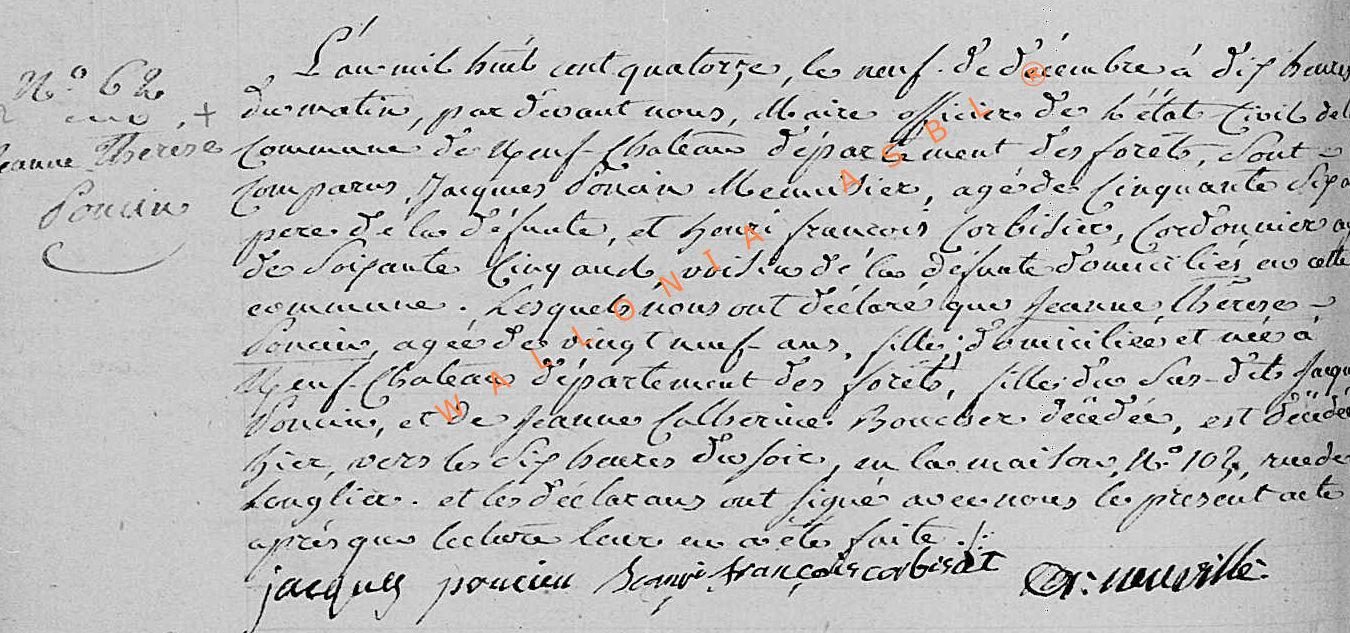 N.o 62
Jeanne Therese
Poncin
L'an mil huit cent quatorze, le neuf de décembre à dix heures
du matin, par devant nous, Maire officier de l'état Civil de la
Commune de Neuf-Chateau département des forêts, Sont
Comparus, Jacques Poncin Menuisier, agé de Cinquante Six a
pere de la défunte, et henri françois Corbisier, Cordonnier ag
de Soixante Cinq ans, voisin de la défunte domiciliés en cette
commune. Lesquels nous ont déclaré que Jeanne Thérese
Poncin, agée de vingt neuf ans, fille, domiciliée et née à
Neuf-Chateau département des forêts, fille du Sus-dit Jacqu
Poncin, et de Jeanne Catherine Boucher décédée, est décédée
hier, vers les Six heures du soir, en la maison N.o 102, rue de
Longlier. et les déclarans ont signé avec nous le présent acte
après que lecture leur en a été faite ./.
jacques poncin henri françois corbisier neuville
WALLONIA ASBL ®